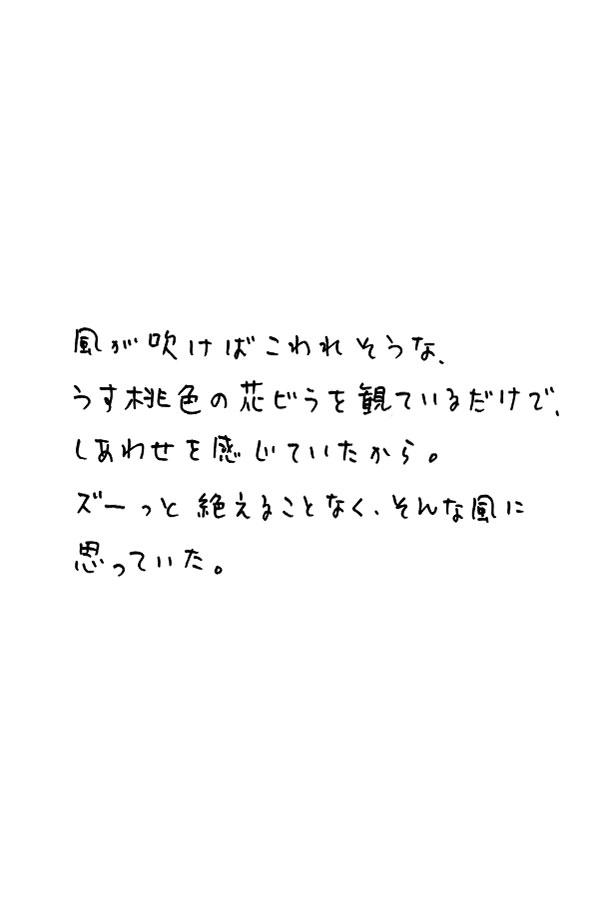 風が吹けばこわれそうな、
うす桃色の花びらを観ているだけで、
しあわせを感じていたから。
ズーっと絶えることなく、そんな風に
思っていた。